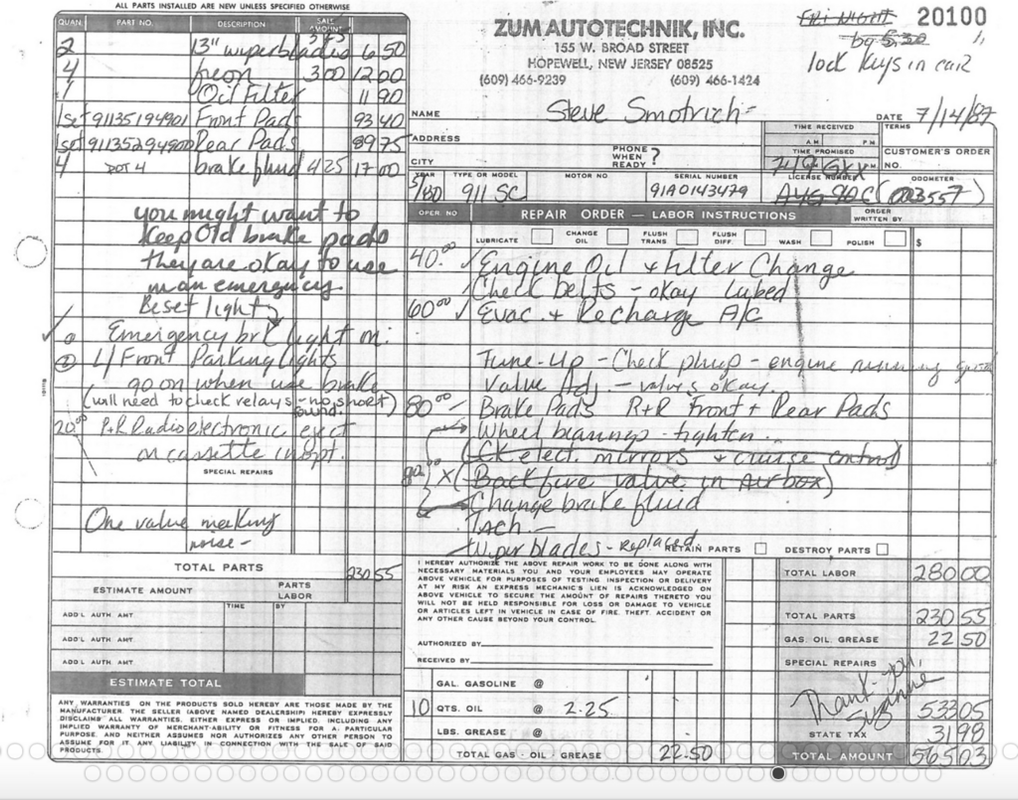 ALL PARTS INSTALLED ARE NEW UNLESS SPECIFIED OTHERWISE
QUAN. PART NO. DESCRIPTION SALE AMOUNT
2 13" wiperblades 3 25 6 50
4 freon 3 00 12 00
1 Oil Filter 11 90
1set 91135194901 Front Pads 93 40
1set Rear Pads 89 75
4 DOT 4 brake fluid 4 25 17 00
you might want to
keep old brake pads
they are okay to use
in an emergency
Reset light
Emergency brk light on.
② L/Front Parking lights
go on when use brake
(will need to check relays - no short)
found.
20 00 R+R Radio electronic eject
on cassette inopt.
SPECIAL REPAIRS
One valve making
noise -
TOTAL PARTS 230 55
ESTIMATE AMOUNT PARTS
LABOR
TIME BY
ADD'L AUTH AMT.
ADD'L AUTH AMT.
ADD'L AUTH AMT.
ESTIMATE TOTAL
ANY WARRANTIES ON THE PRODUCTS SOLD HEREBY ARE THOSE MADE BY THE
MANUFACTURER. THE SELLER (ABOVE NAMED DEALERSHIP) HEREBY EXPRESSLY
DISCLAIMS ALL WARRANTIES, EITHER EXPRESS OR IMPLIED, INCLUDING ANY
IMPLIED WARRANTY OF MERCHANT-ABILITY OR FITNESS FOR A PARTICULAR
PURPOSE, AND NEITHER ASSUMES NOR AUTHORIZES ANY OTHER PERSON TO
ASSUME FOR IT ANY LIABILITY IN CONNECTION WITH THE SALE OF SAID
PRODUCTS.
ZUM AUTOTECHNIK, INC.
155 W. BROAD STREET
HOPEWELL, NEW JERSEY 08525
(609) 466-9239 (609) 466-1424
FRI NIGHT 20100
by 5:30
lock keys in car
NAME Steve Smotrich DATE 7/14/87
ADDRESS TIME RECEIVED A.M. P.M. TERMS
CITY PHONE WHEN READY ? TIME PROMISED P.M. CUSTOMER'S ORDER NO.
YEAR TYPE OR MODEL MOTOR NO SERIAL NUMBER LICENSE NUMBER ODOMETER
5/80 911 SC 91A0143479
OPER. NO REPAIR ORDER — LABOR INSTRUCTIONS ORDER WRITTEN BY
LUBRICATE CHANGE OIL FLUSH TRANS FLUSH DIFF. WASH POLISH $
40.00 ✓ Engine Oil + Filter Change
✓ Check belts - okay lubed
60 00 ✓ Evac. + Recharge A/C
Tune-Up - Check plugs - engine running good
Valve Adj. - valves okay.
80 00 Brake Pads R+R Front + Rear Pads
Wheel bearings - tighten
(CK elect. mirrors + cruise control)
80 00 X (Backfire valve in Air box)
Change brake fluid
Tach -
Wiper blades - Replaced
RETAIN PARTS DESTROY PARTS
I HEREBY AUTHORIZE THE ABOVE REPAIR WORK TO BE DONE ALONG WITH
NECESSARY MATERIALS YOU AND YOUR EMPLOYEES MAY OPERATE
ABOVE VEHICLE FOR PURPOSES OF TESTING INSPECTION OR DELIVERY
AT MY RISK AN EXPRESS MECHANIC'S LIEN IS ACKNOWLEDGED ON
ABOVE VEHICLE TO SECURE THE AMOUNT OF REPAIRS THERETO YOU
WILL NOT BE HELD RESPONSIBLE FOR LOSS OR DAMAGE TO VEHICLE
OR ARTICLES LEFT IN VEHICLE IN CASE OF FIRE. THEFT. ACCIDENT OR
ANY OTHER CAUSE BEYOND YOUR CONTROL.
AUTHORIZED BY
RECEIVED BY
GAL. GASOLINE @
10 QTS. OIL @ 2.25
LBS. GREASE @
TOTAL GAS · OIL · GREASE 22.50
TOTAL LABOR 280 00
TOTAL PARTS 230 55
GAS. OIL. GREASE 22 50
SPECIAL REPAIRS
Thank-you,
Suzanne
533 05
STATE TAX 31 98
TOTAL AMOUNT 565 03